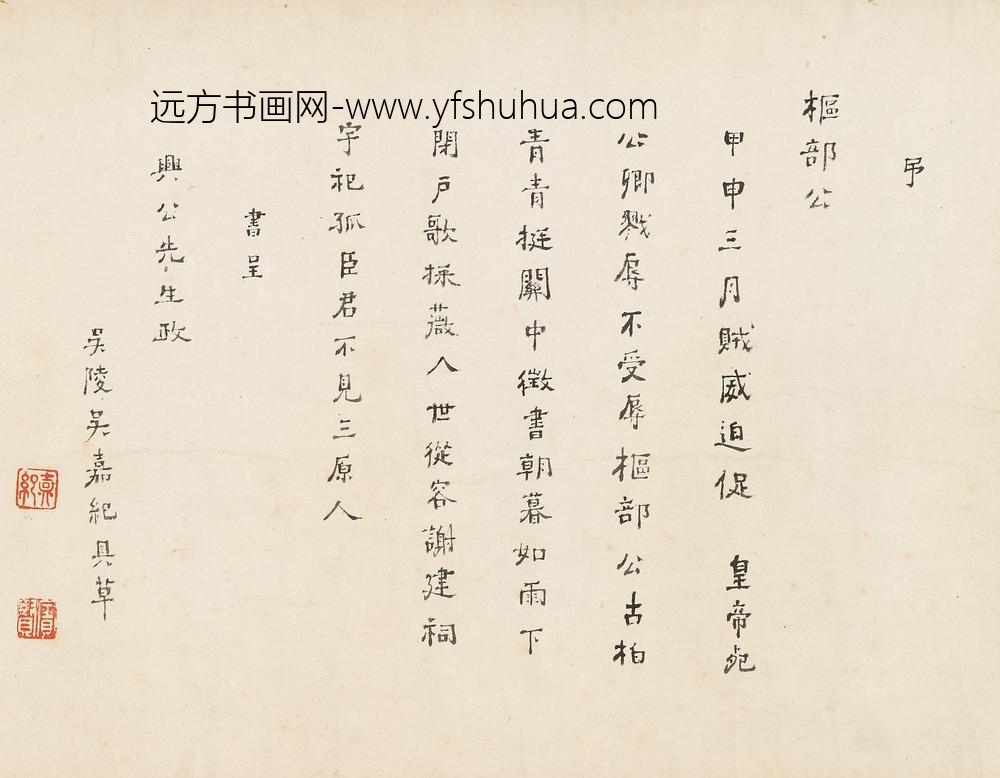 远方书画网-www.yfshuhua.com
弔
樞部公
甲申三月賊威迫促 皇帝
公卿戮辱不受辱樞部公古柏
青青挺關中徵書朝暮如雨下
閉戶歌採薇入世從容謝建祠
宇祀孤臣君不見三原人
書呈
興公先生政
吳陵吳嘉紀具草